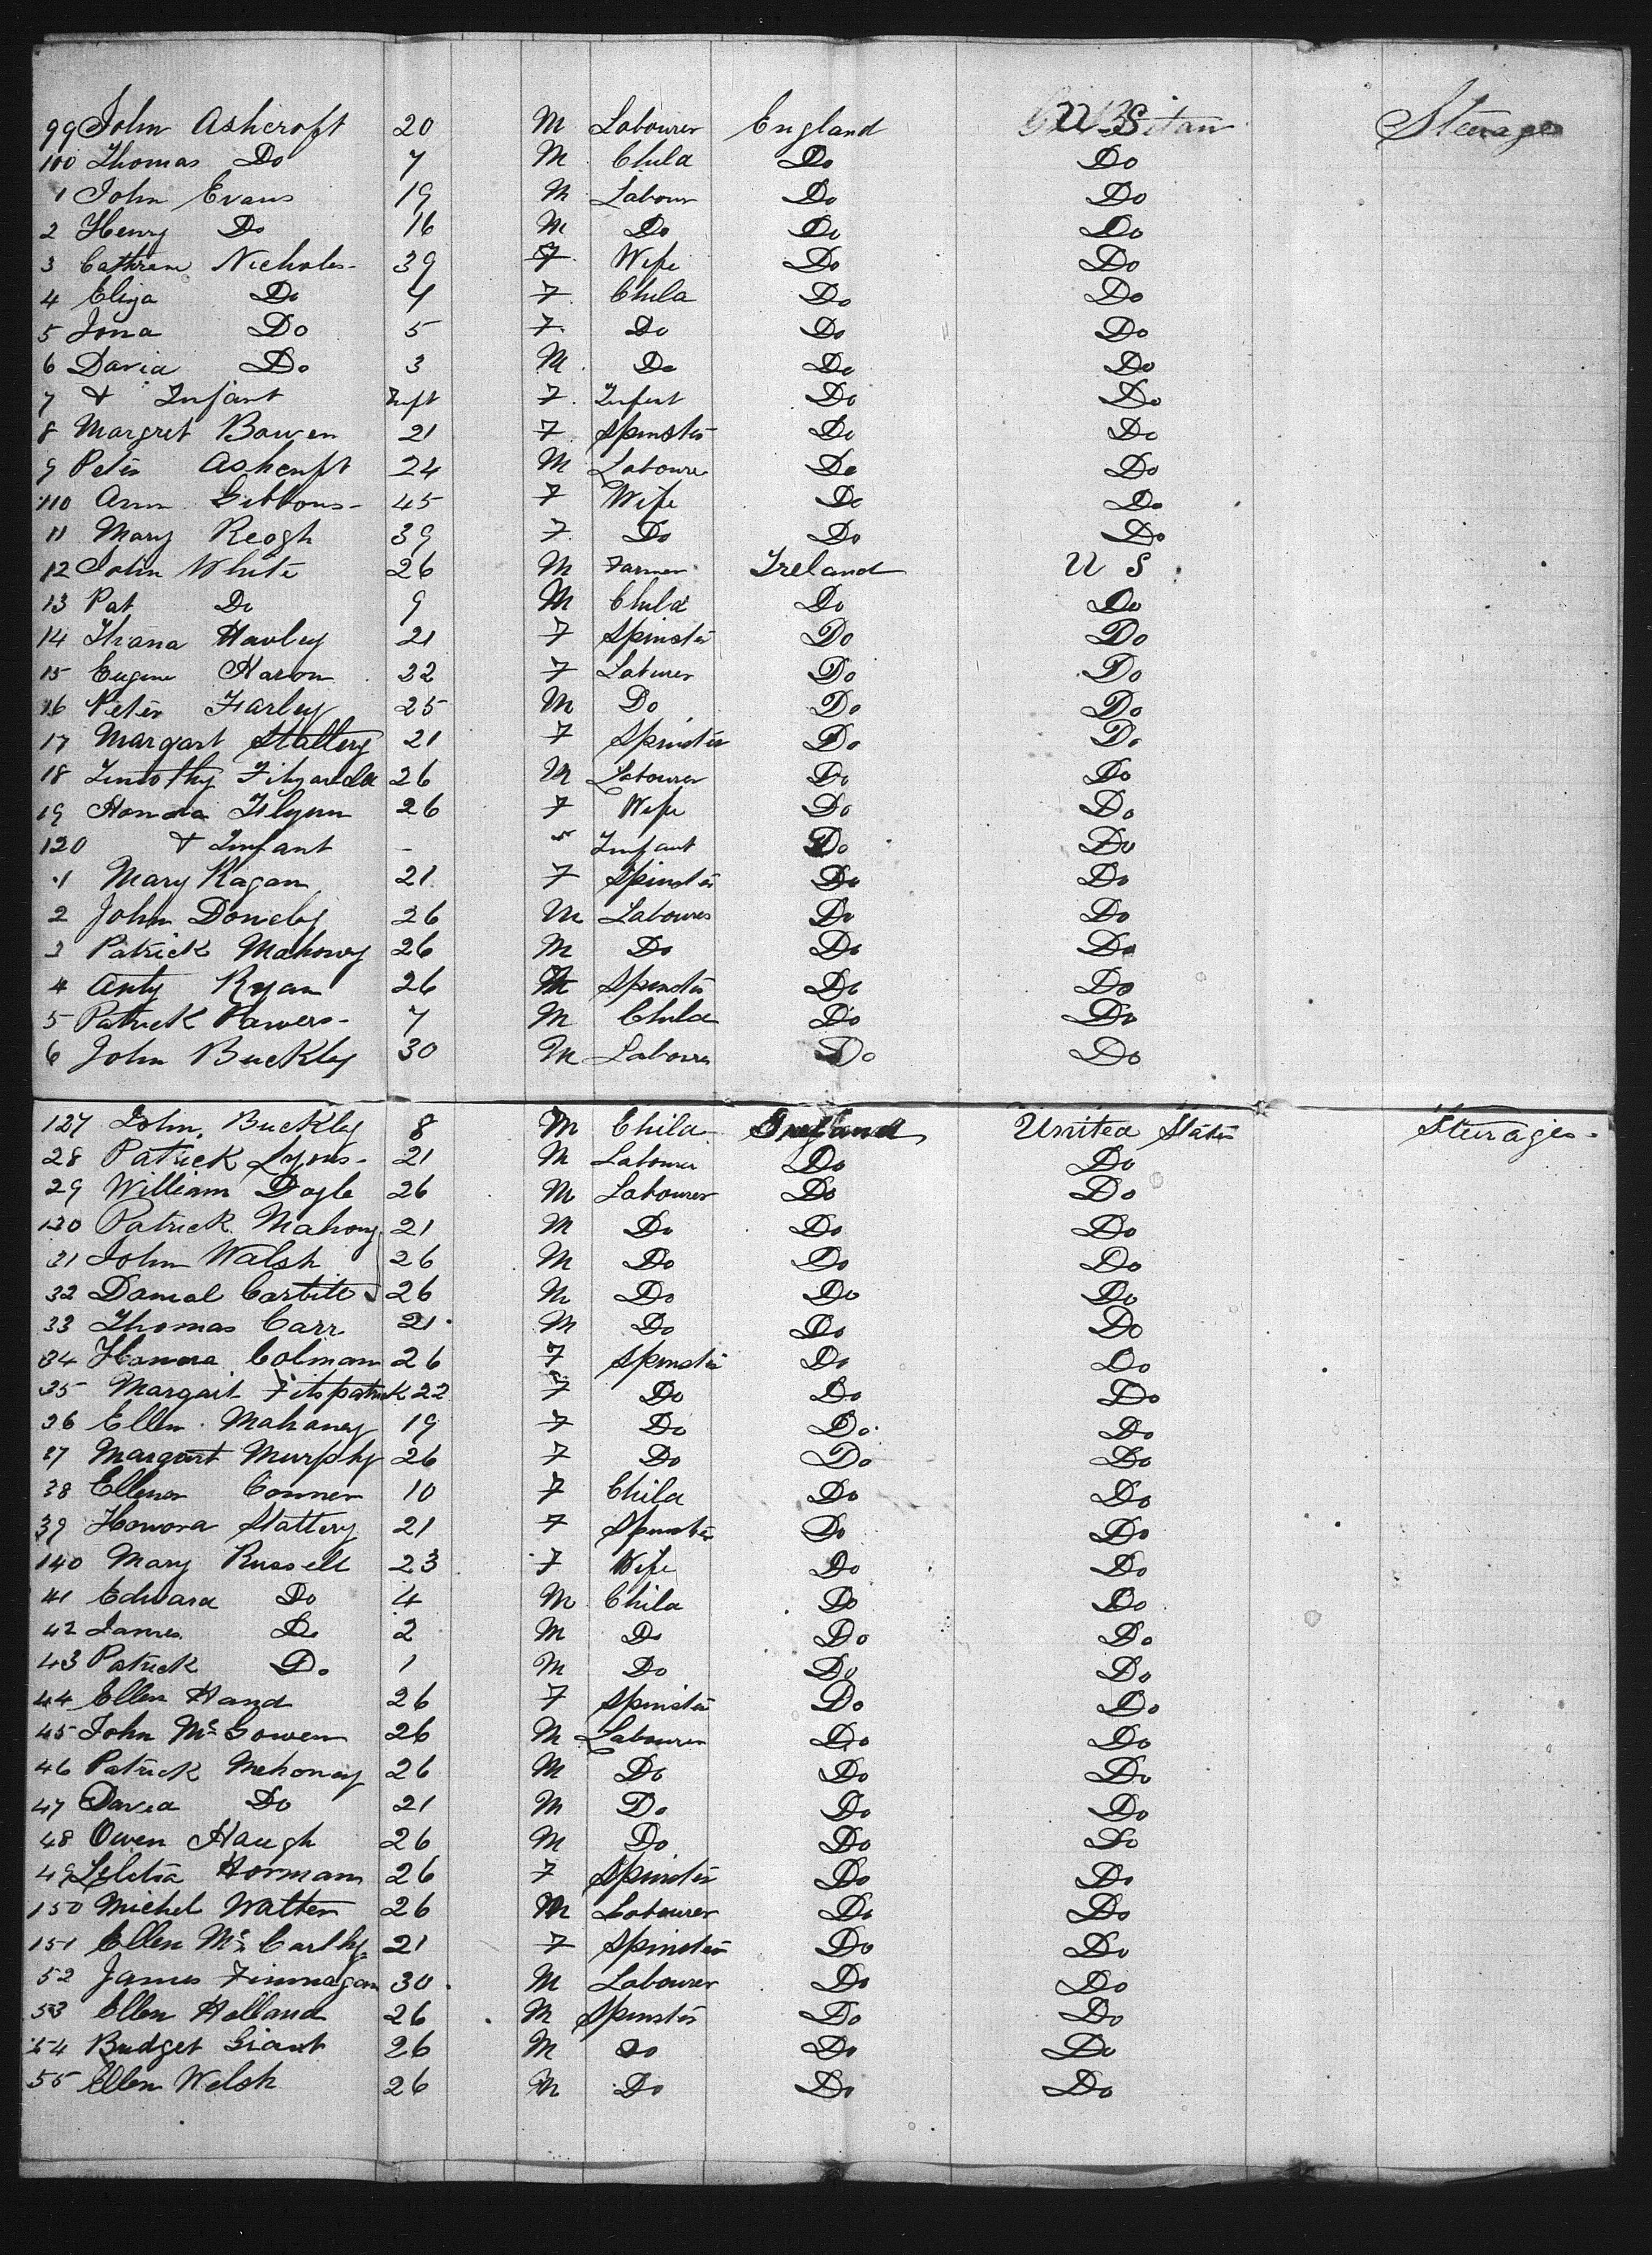 99 John Ashcroft 20 M Labourer England U S Steerage
100 Thomas Do 7 M Chila Do Do
1 John Evans 19 M Labour Do Do
2 Henry Do 16 M Do Do Do
3 Cathrine Nicholes 39 F Wife Do Do
4 Eliza Do 7 F Chila Do Do
5 Jona Do 5 F Do Do Do
6 Davia Do 3 M Do Do Do
7 & Infant Inft F Infant Do Do
8 Margret Bowen 21 F Spinster Do Do
9 Peter Ashcroft 24 M Laboure Do Do
110 Ann Gibbons 45 F Wife Do Do
11 Mary Keogh 39 F Do Do Do
12 John White 26 M Farmer Ireland U S
13 Pat Do 9 M Chila Do Do
14 Hanley 21 F Spinster Do Do
15 Eugene 22 F Laburer Do Do
16 Peter Farley 25 M Do Do Do
17 Margart Slattery 21 F Spinster Do Do
18 Timothy 26 M Labourer Do Do
19 Honora Flynn 26 F Wife Do Do
120 & Infant - Infant Do Do
1 Mary Kagan 21 F Spinster Do Do
2 John 26 M Labourer Do Do
3 Patrick Mahony 26 M Do Do Do
4 Anty Ryan 26 M Spinster Do Do
5 Patrick Powers 7 M Chila Do Do
6 John Buckley 30 M Labourer Do Do
127 John Buckley 8 M Chila Ireland Unitea States Steerages
28 Patrick Lyons 21 M Labourer Do Do
29 William Dogle 26 M Labourer Do Do
130 Patrick Mahony 21 M Do Do Do
31 John Walsh 26 M Do Do Do
32 Danial 26 M Do Do Do
33 Thomas Carr 21 M Do Do Do
34 Hanora Colman 26 F Spinster Do Do
35 Margait Fitspatrick 22 F Do Do Do
36 Ellen Mahaney 19 F Do Do Do
37 Margart Murphy 26 F Do Do Do
38 Ellenor Conner 10 F Chila Do Do
39 Honora Slattery 21 F Spinster Do Do
140 Mary Russell 23 F Wife Do Do
41 Edwara Do 4 M Chila Do Do
42 James Do 2 M Do Do Do
43 Patrick Do 1 M Do Do Do
44 Ellen Hand 26 F Spinster Do Do
45 John McGowen 26 M Labourer Do Do
46 Patrick Mehoney 26 M Do Do Do
47 Davia Do 21 M Do Do Do
48 Owen Haugh 26 M Do Do Do
49 Letitia Hormans 26 F Spinster Do Do
150 Michel Walter 26 M Labourer Do Do
151 Ellen McCarthy 21 F Spinster Do Do
52 James Finnagan 30 M Labourer Do Do
53 Ellen Hollana 26 M Spinster Do Do
54 Bridget Giant 26 M Do Do Do
55 Ellen Welsh 26 M Do Do Do